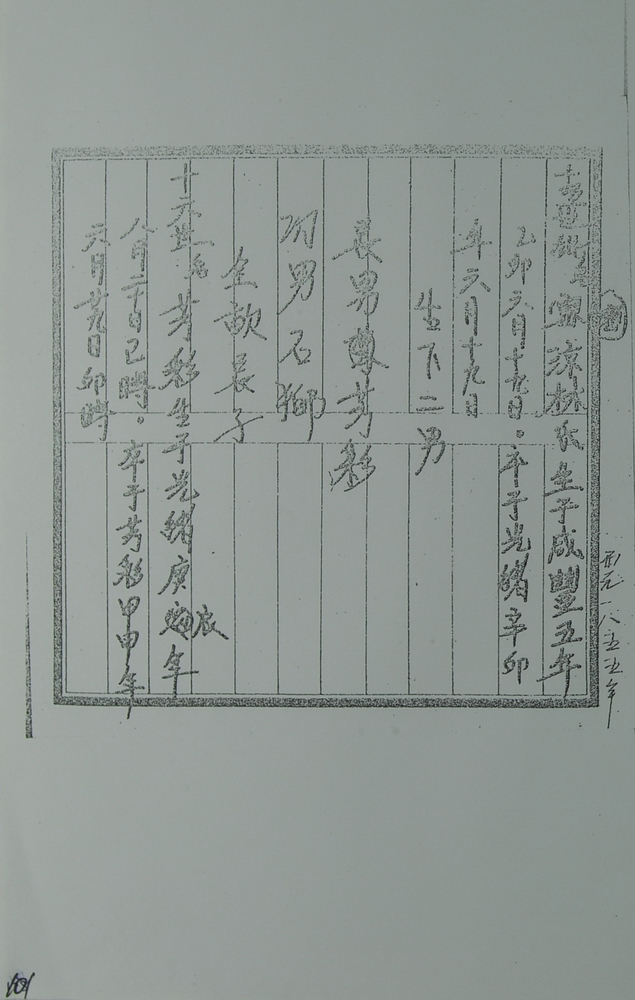 西元一八五五年
世 涼林氏生于咸豐五年
乙卯六月十九日。卒于光緒辛卯
年六月十九日
生下二男
長男 芳彩
次男石獅
長子
十六世 芳彩生于光緒庚辰年
八月二十日巳時。卒于芳彩甲申年
六月廿九日卯時
101